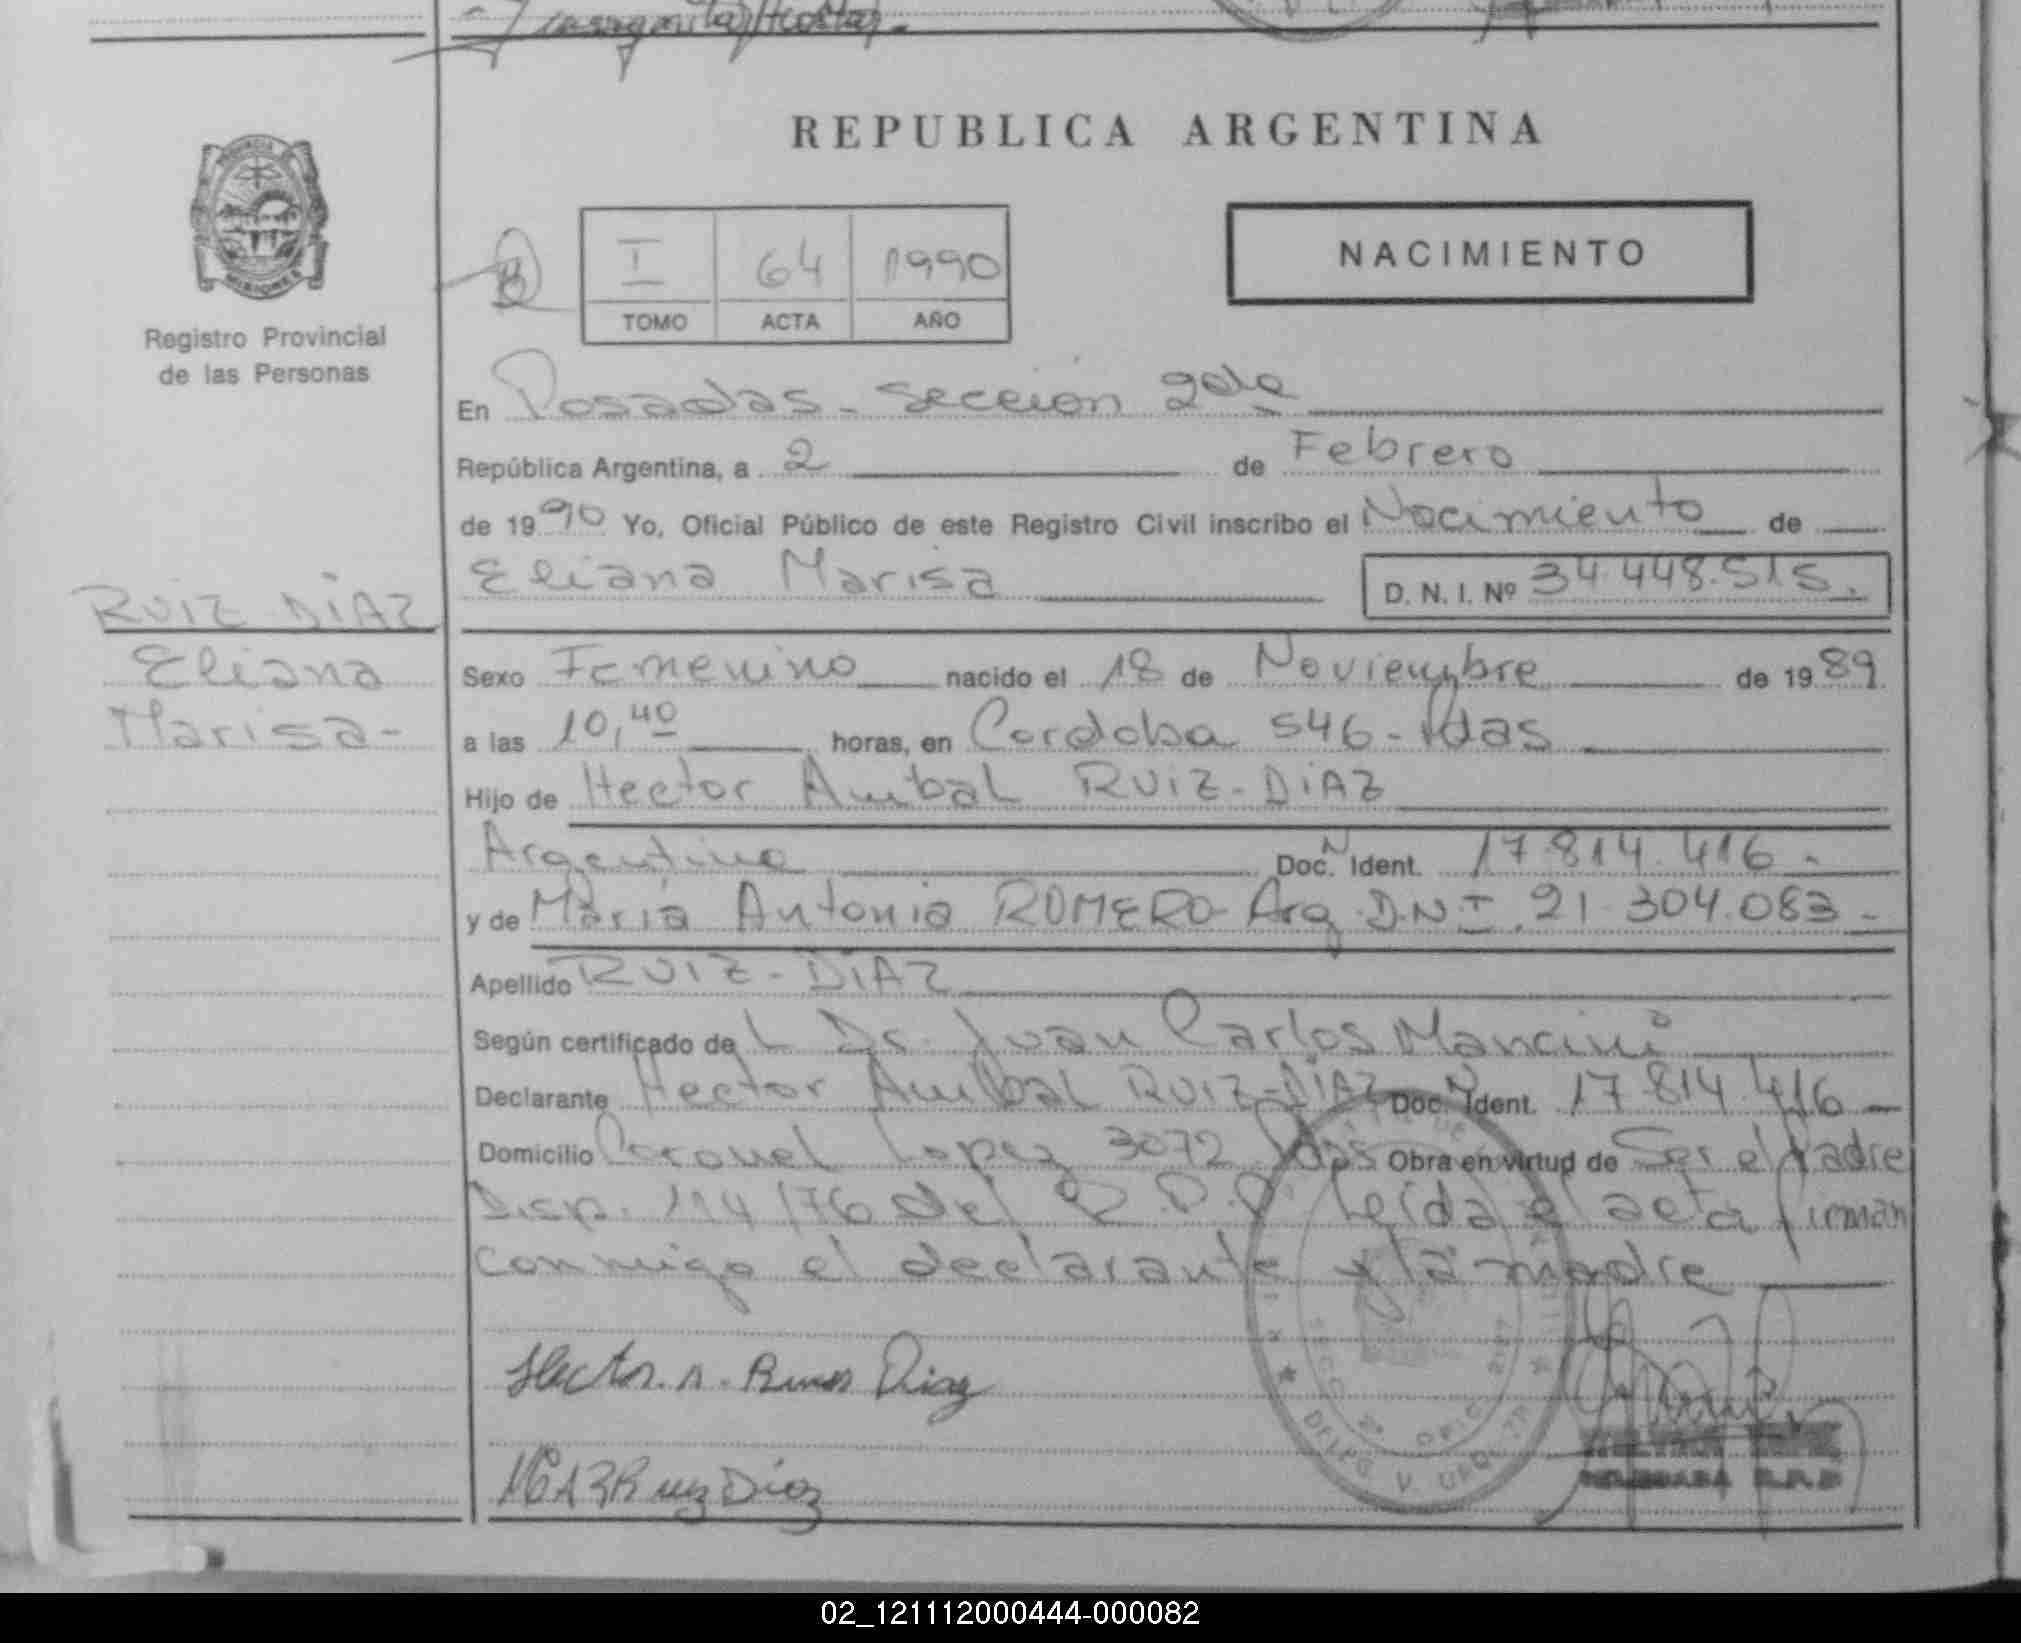 REPUBLICA ARGENTINA
PROVINCIA DE
MISIONES
Registro Provincial
de las Personas
I 64 1990
TOMO ACTA AÑO
NACIMIENTO
En Posadas - Sección 2da
República Argentina, a 2 de Febrero
de 1990 Yo, Oficial Público de este Registro Civil inscribo el Nacimiento de
Eliana Marisa D. N. I. Nº 34.448.515.
RUIZ-DIAZ
Eliana
Marisa-
Sexo Femenino nacido el 18 de Noviembre de 1989
a las 10,40 horas, en Cordoba 546 - Pdas
Hijo de Hector Anibal RUIZ-DIAZ
Argentino Doc. N Ident. 17.814.416 -
y de María Antonia ROMERO- Arg. D.N.I. 21.304.083 -
Apellido RUIZ-DIAZ
Según certificado de L Dr. Juan Carlos Mancini
Declarante Hector Anibal RUIZ-DIAZ Doc. N Ident. 17.814.416 -
Domicilio Coronel Lopez 3072 Pdas Obra en virtud de Ser el Padre
Disp. 114/76 del R.P.P. Leída el acta firman
conmigo el declarante y la madre
Hector. A. Ruiz Diaz
Ruiz Diaz
02_121112000444-000082